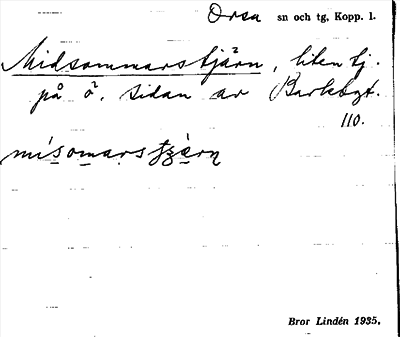 Orsa sn och tg. Kopp. l.
Midsommarstjärn, liten tj.
på ö. sidan av Barkbgt.
110.
mísomarstjärn
Bror Lindén 1935.